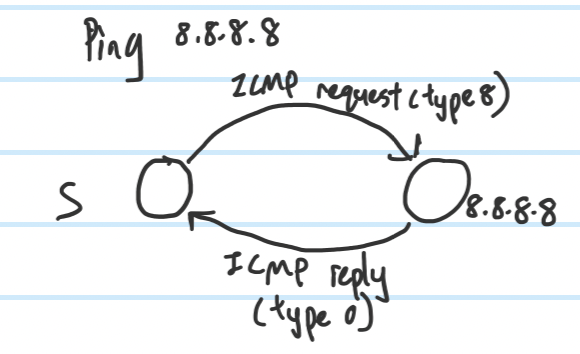 Ping 8.8.8.8
ICMP request (type 8)
S
8.8.8.8
ICMP reply
(type 0)